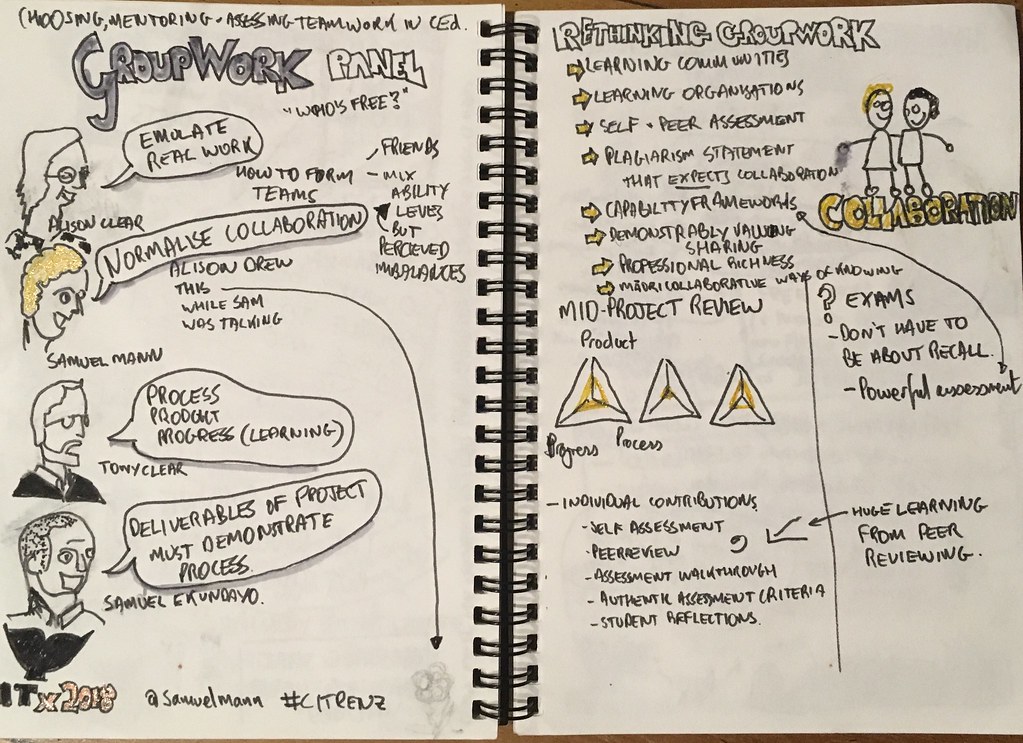 CHOOSING, MENTORING + ASSESSING TEAMWORK IN CEd.
GROUPWORK PANEL
"WHO'S FREE?"
EMULATE
REAL WORK
HOW TO FORM
TEAMS
FRIENDS
- MIX
ABILITY
LEVELS
BUT
PERCIEVED
IMBALANCES
ALISON CLEAR
NORMALISE COLLABORATION
ALISON DREW
THIS
WHILE SAM
WAS TALKING
SAMUEL MANN
PROCESS
PRODUCT
PROGRESS (LEARNING)
TONY CLEAR
DELIVERABLES OF PROJECT
MUST DEMONSTRATE
PROCESS.
SAMUEL EKUNDAYO.
ITx2018 @samuelmann #CITRENZ
RETHINKING GROUPWORK
LEARNING COMMUNITIES
LEARNING ORGANISATIONS
SELF + PEER ASSESSMENT
PLAGIARISM STATEMENT
THAT EXPECTS COLLABORATION
CAPABILITY FRAMEWORKS
DEMONSTRABLY VALUING
SHARING
PROFESSIONAL RICHNESS
MĀORI COLLABORATIVE WAYS OF KNOWING
COLLABORATION
MID-PROJECT REVIEW
Product
Progress
Process
? EXAMS
- DON'T HAVE TO
BE ABOUT RECALL.
- Powerful assessment
- INDIVIDUAL CONTRIBUTIONS
- SELF ASSESSMENT
- PEER REVIEW
- ASSESSMENT WALKTHROUGH
- AUTHENTIC ASSESSMENT CRITERIA
- STUDENT REFLECTIONS.
HUGE LEARNING
FROM PEER
REVIEWING.